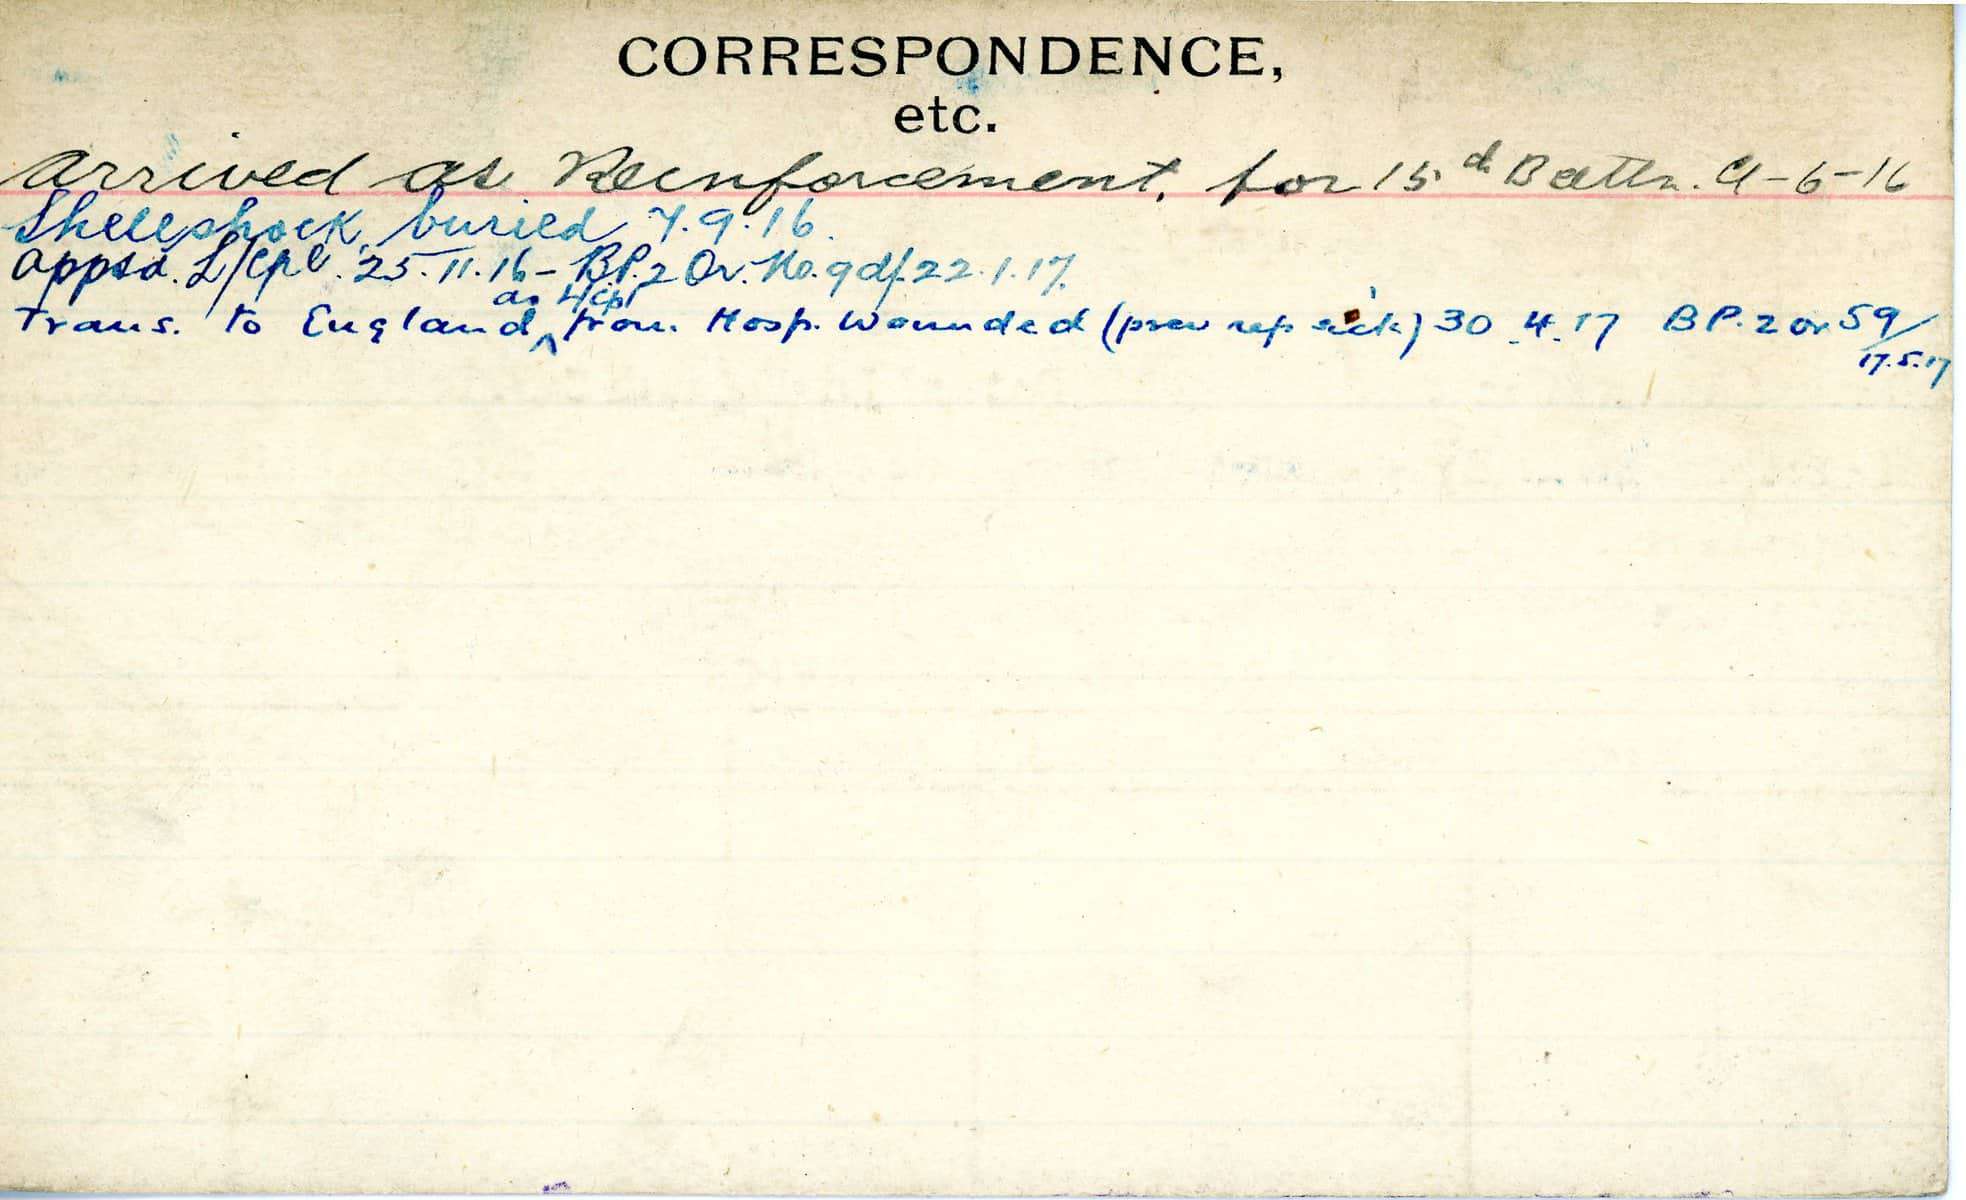 CORRESPONDENCE,
etc.
Arrived as Reinforcement, for 15th Battn. 9-6-16
Shellshock, buried 7.9.16.
Apptd. L/Cpl. 25.11.16 - B.P.2 Or. No. 9 d/. 22.1.17.
Trans. to England ^as L/Cpl from Hosp. Wounded (prev rep sick) 30.4.17 B P. 2 or 59/
17.5.17